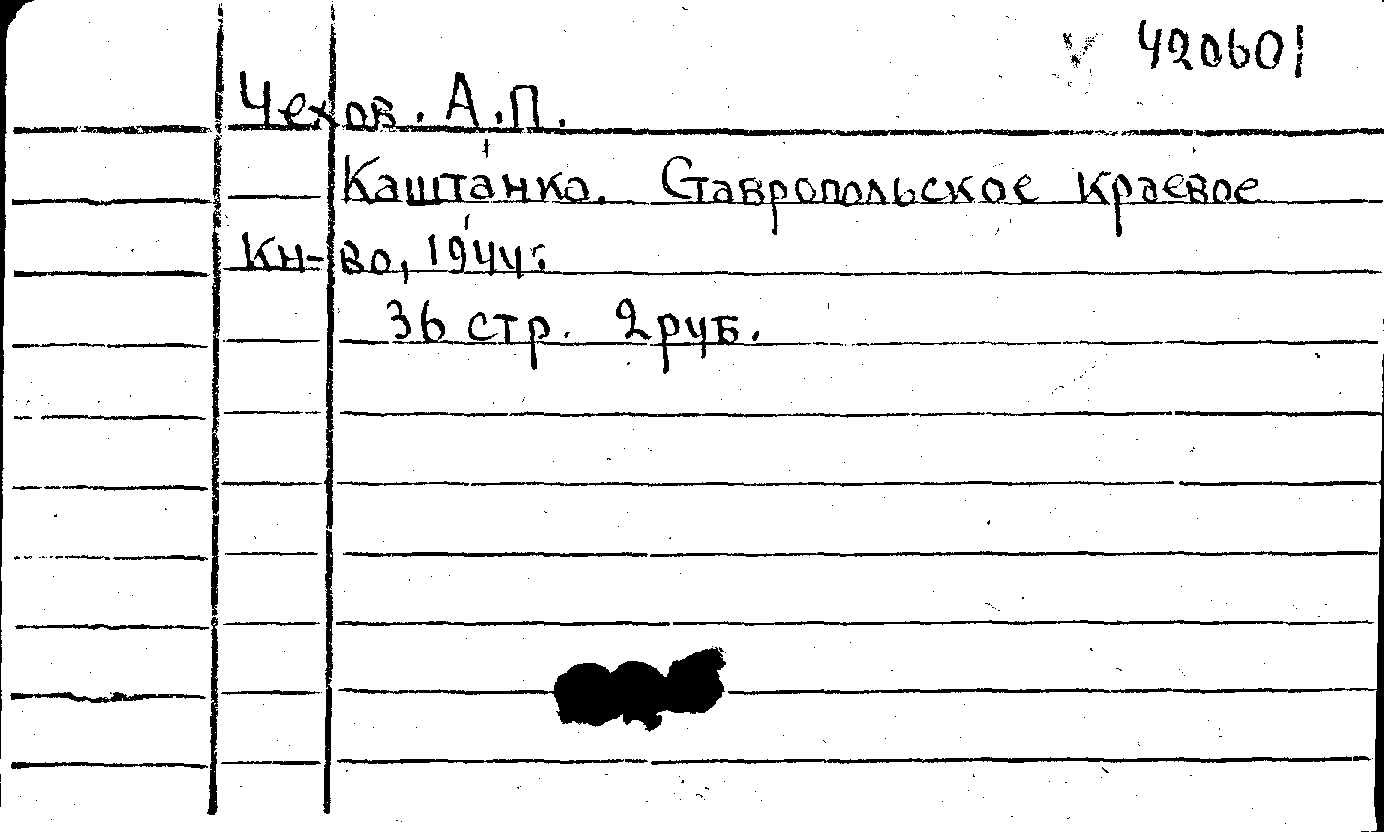 420601
Чехов. А.П.
Каштанка. Ставропольское краевое
кн-во, 1944г.
36 стр. 2 руб.